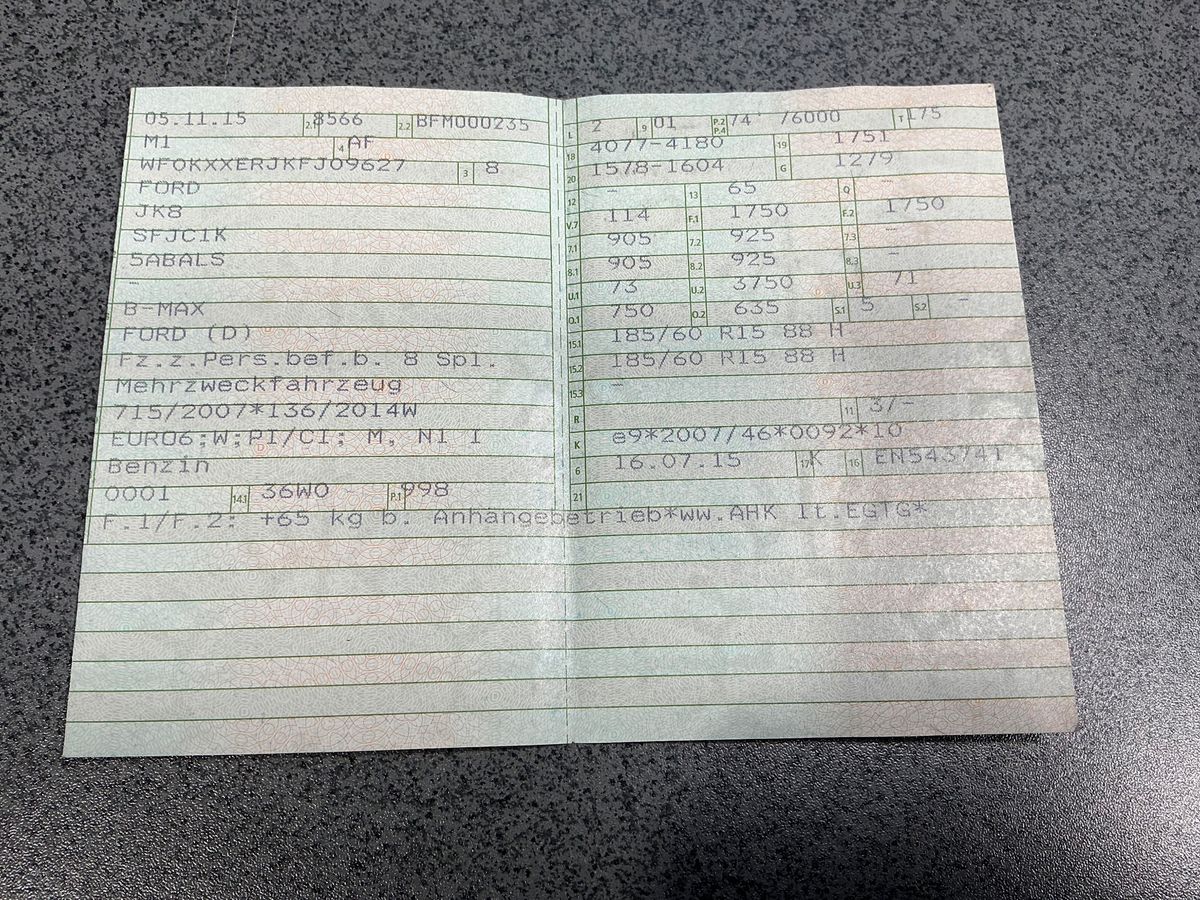 05.11.15 2.1 8566 2.2 BFM000235
M1 4 AF
WF0KXXERJKFJ09627 3 8
FORD
JK8
SFJC1K
5ABALS
–
B-MAX
FORD (D)
Fz.z.Pers.bef.b. 8 Spl.
Mehrzweckfahrzeug
715/2007*136/2014W
EURO6;W;PI/CI; M, N1 I
Benzin
0001 14.1 36W0 P.1 998
F.1/F.2: +65 kg b. Anhängebetrieb*ww.AHK lt.EGTG*
L 2 9 01 P.2 P.4 74 /6000 T 175
18 4077-4180 19 1751
20 1578-1604 G 1279
12 – 13 65 Q –
V.7 114 F.1 1750 F.2 1750
7.1 905 7.2 925 7.3 –
8.1 905 8.2 925 8.3 –
U.1 73 U.2 3750 U.3 71
O.1 750 O.2 635 S.1 5 S.2 –
15.1 185/60 R15 88 H
15.2 185/60 R15 88 H
15.3 –
R 11 3/-
K e9*2007/46*0092*10
6 16.07.15 17 K 16 EN543741
21